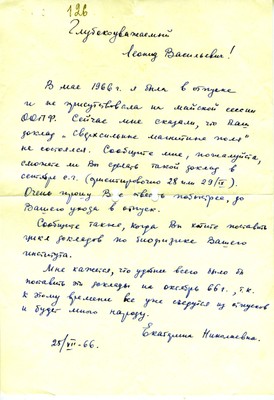 126
Глубокоуважаемый
Леонид Васильевич!
В мае 1966 г. я была в отпуске
и не присутствовала на майской сессии
ООПФ. Сейчас мне сказали, что Ваш
доклад „Сверхсильные магнитные поля"
не состоялся. Сообщите мне, пожалуйста,
сможете ли Вы сделать такой доклад в
сентябре с.г. (ориентировочно 28 или 29/IX).
Очень прошу Вас ответить побыстрее, до
Вашего ухода в отпуск.
Сообщите также, когда Вы хотите поставить
цикл докладов по биофизике Вашего
института.
Мне кажется, что удобнее всего было бы
поставить эти доклады на октябрь 66 г., т.к.
к этому времени все уже съедутся из отпусков
и будет много народу.
Екатерина Николаевна.
25/VII-66.